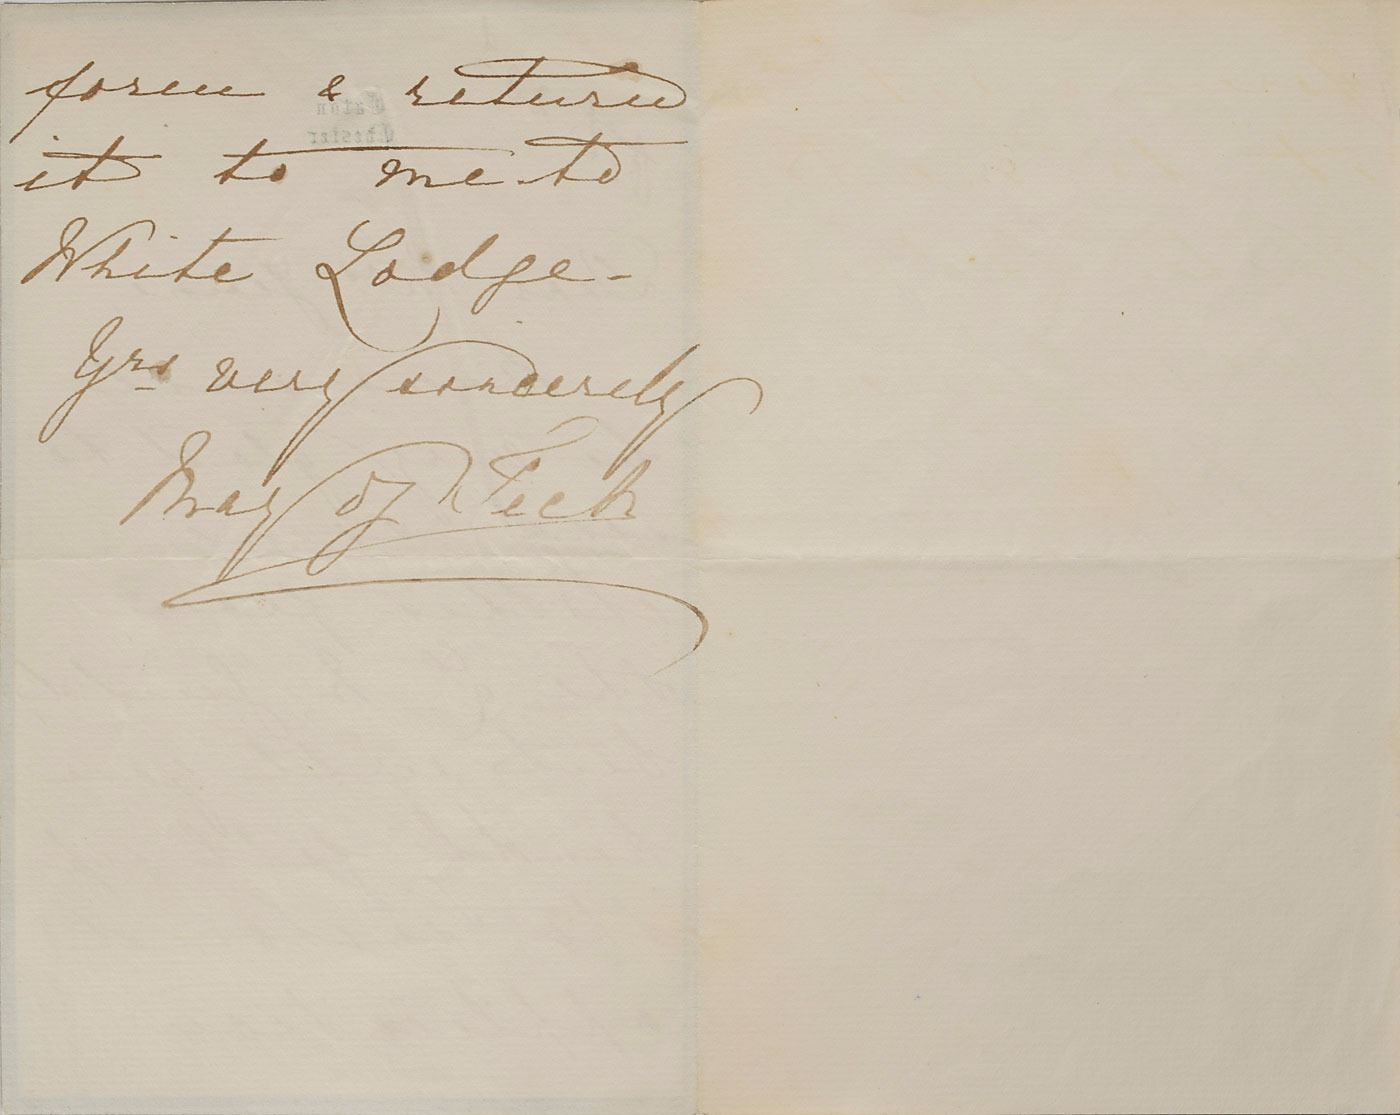 form & return
it to me to
White Lodge -
Yrs very sincerely
May of Teck
Eaton
Chester